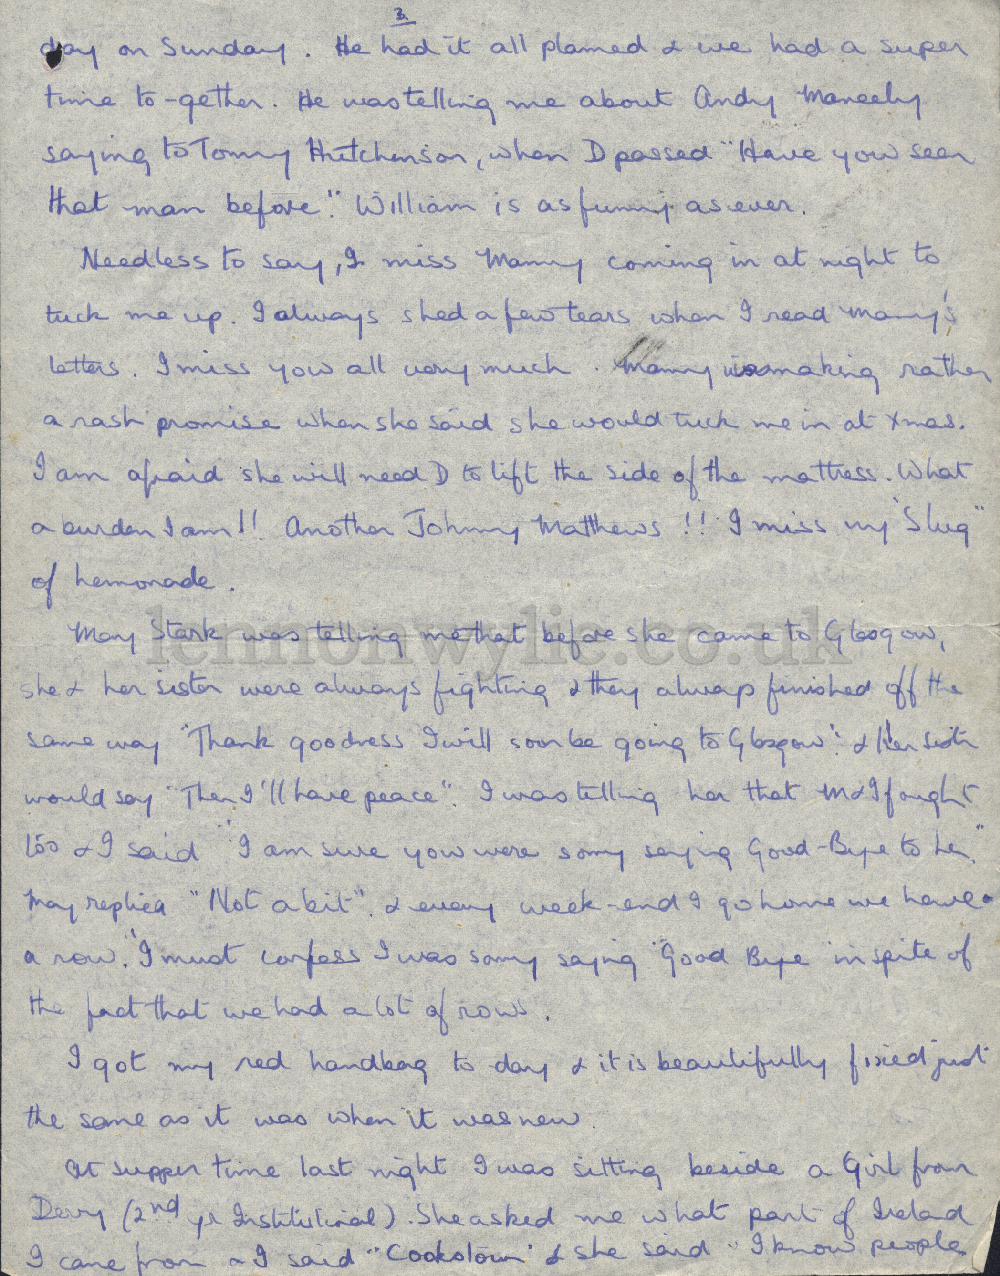 3.
day on Sunday. He had it all planned & we had a super
time to-gether. He was telling me about Andy Maneely
saying to Tommy Hutchinson, when D passed "Have you seen
that man before". William is as funny as ever.
Needless to say, I miss Mammy coming in at night to
tuck me up. I always shed a few tears when I read Mammy's
letters. I miss you all very much. Mammy was making rather
a rash promise when she said she would tuck me in at Xmas.
I am afraid she will need D to lift the side of the mattress. What
a burden I am!! Another Johnny Matthews!! I miss my "Slug"
of Lemonade.
lennonwylie.co.uk
May Stark was telling me that before she came to Glasgow,
she & her sister were always fighting & they always finished off the
same way "Thank goodness I will soon be going to Glasgow". & her sister
would say "Then I'll have peace". I was telling her that M & I fought
too & I said "I am sure you were sorry saying Good-Bye to her."
May replied "Not a bit". & every week-end I go home we have
a row." I must confess I was sorry saying "Good Bye" in spite of
the fact that we had a lot of rows.
I got my red handbag to day & it is beautifully fixed just
the same as it was when it was new.
At supper time last night I was sitting beside a Girl from
Derry (2nd yr Institutional). She asked me what part of Ireland
I came from & I said "Cookstown" & she said "I know people